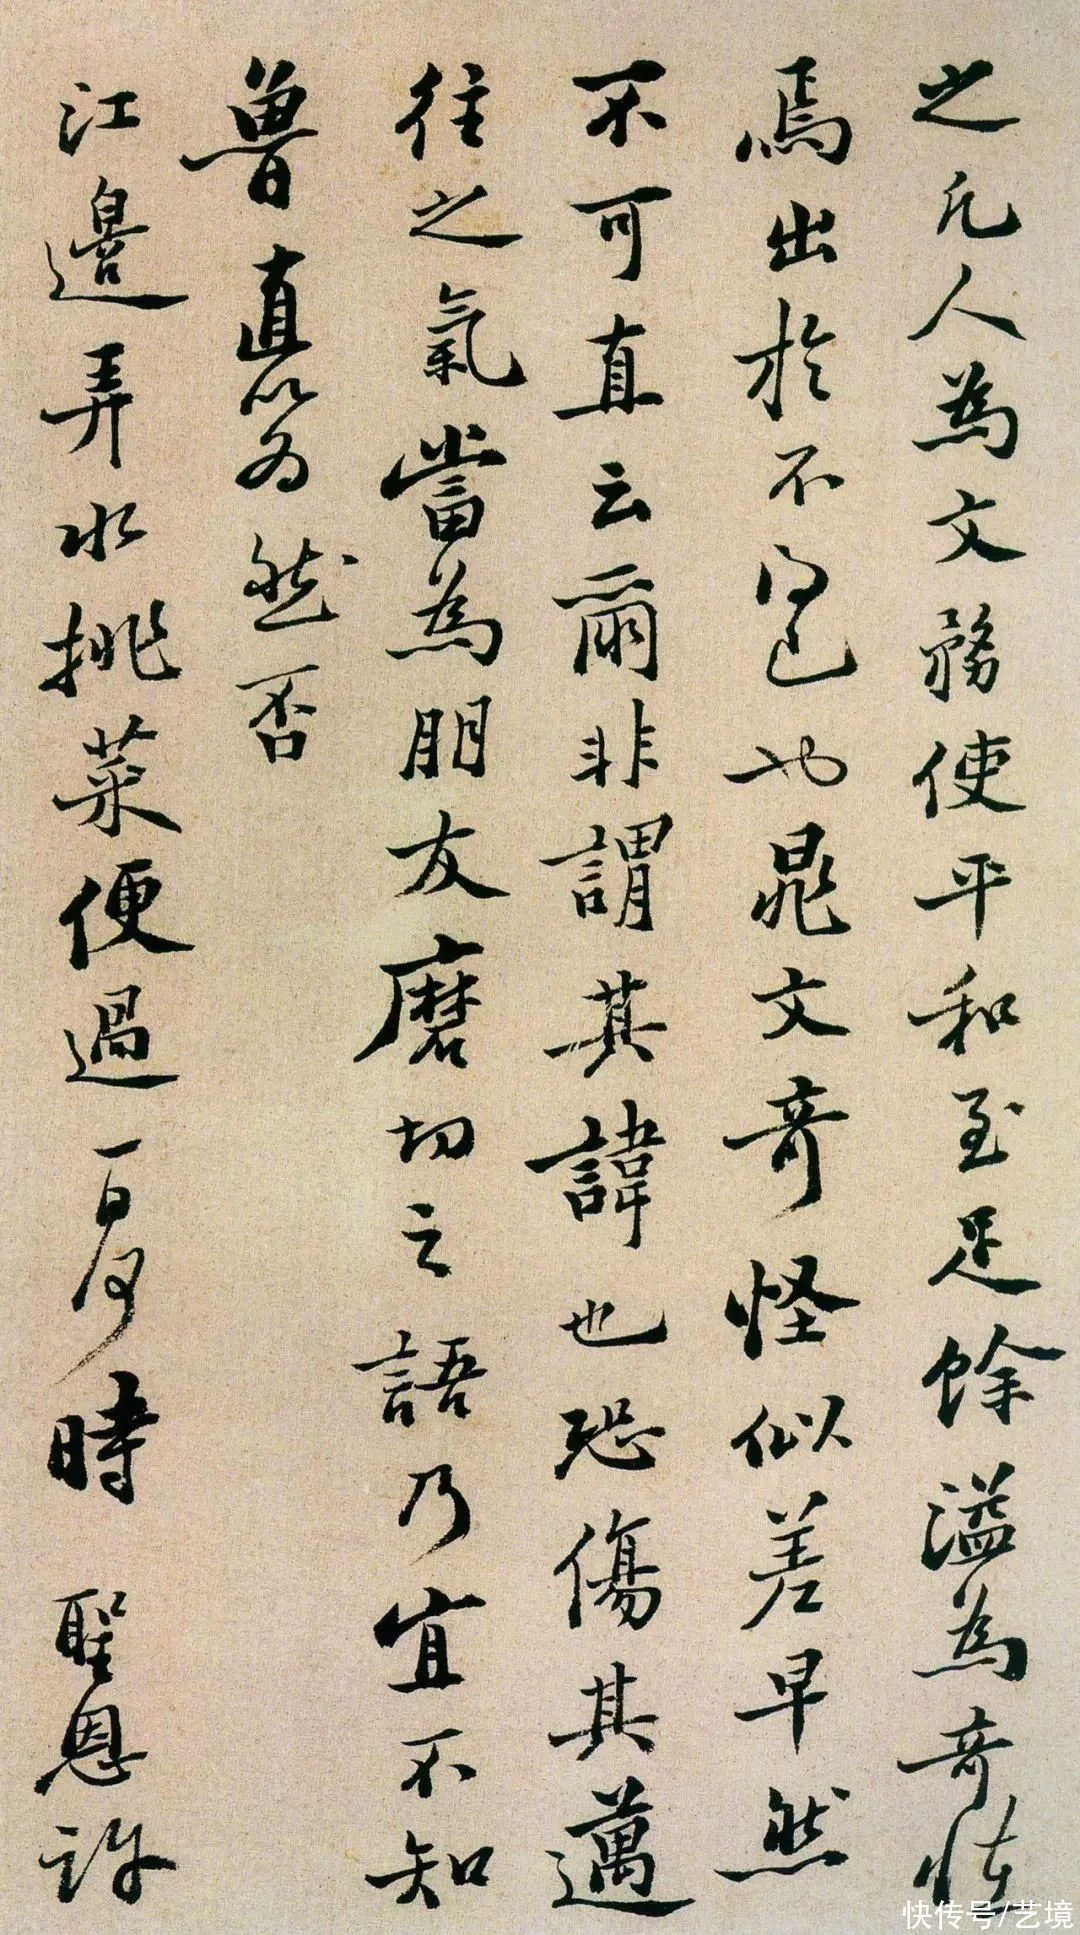 之凡人為文務使平和至足餘溢為奇怪
焉出於不得已也晁文奇怪似差早然
不可直云爾非謂其諱也恐傷其邁
往之氣當為朋友磨切之語乃宜不知
魯直以為然否
江邊弄水挑菜便過一日何時聖恩許
快传号/艺境